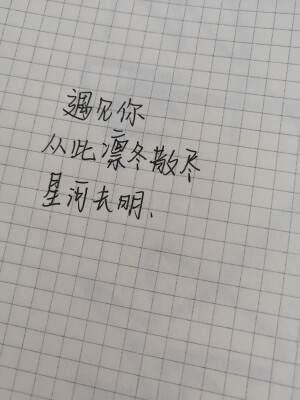 遇见你
从此凛冬散尽
星河长明、